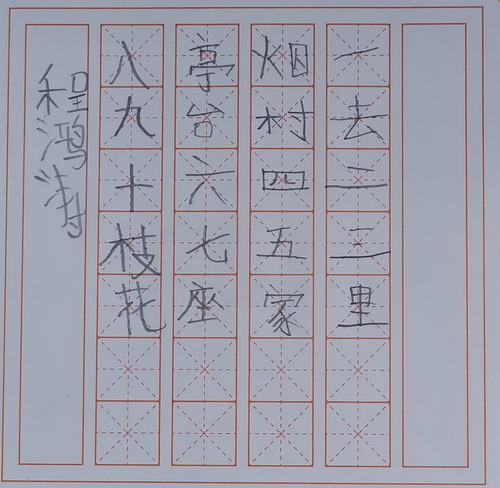 一去二三里
烟村四五家
亭台六七座
八九十枝花
程鸿涛